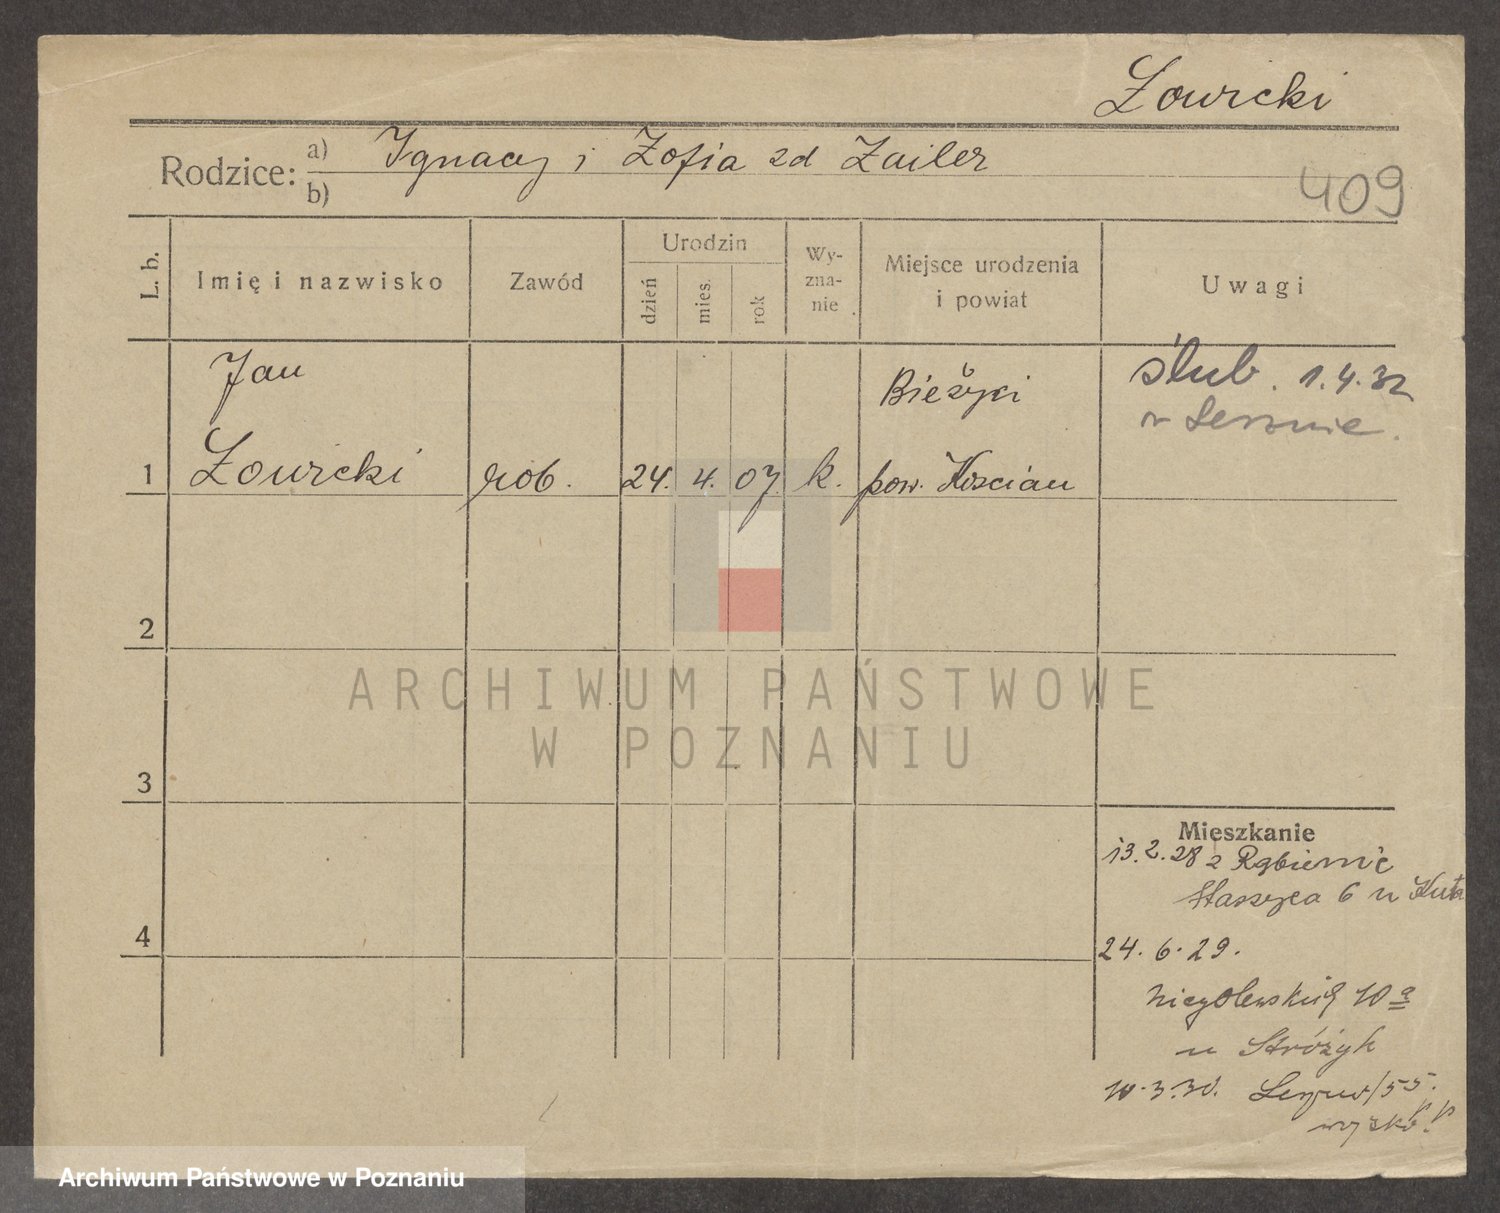 Łowicki
Rodzice: a) Ignacy i Zofia zd Zailer
b)
409
L. b.
Imię i nazwisko
Zawód
Urodzin
dzień
mies.
rok
Wy-
zna-
nie
Miejsce urodzenia
i powiat
Uwagi
Jan
Łowicki
1
rob.
24. 4. 07. k.
pow. Kościan
ślub. 1.4.32
w Lesznie.
2
3
4
Mieszkanie
13.2.28 z
Staszyca 6 u
24.6.29.
Niegolewskich 10a
u Stróżyk
10.3.30. Leszno/55.
wojsko
ARCHIWUM PAŃSTWOWE
W POZNANIU
Archiwum Państwowe w Poznaniu